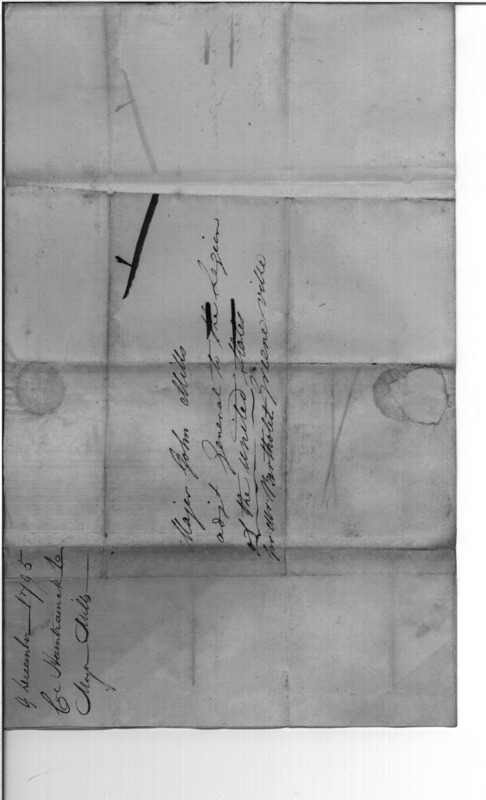 Major John Mills
adjt General to the Legion
of the united States
pr Mr. Bartholet Greene ville
9 December 1795
Cl Hamtramck to
Major Mills